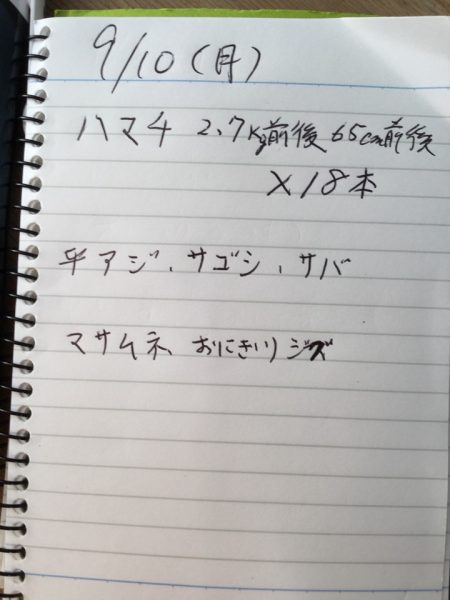 9/10(月)
ハマチ 2.7Kg前後 65cm前後
×18本
平アジ、サゴシ、サバ
マサムネ、おにぎりジグ